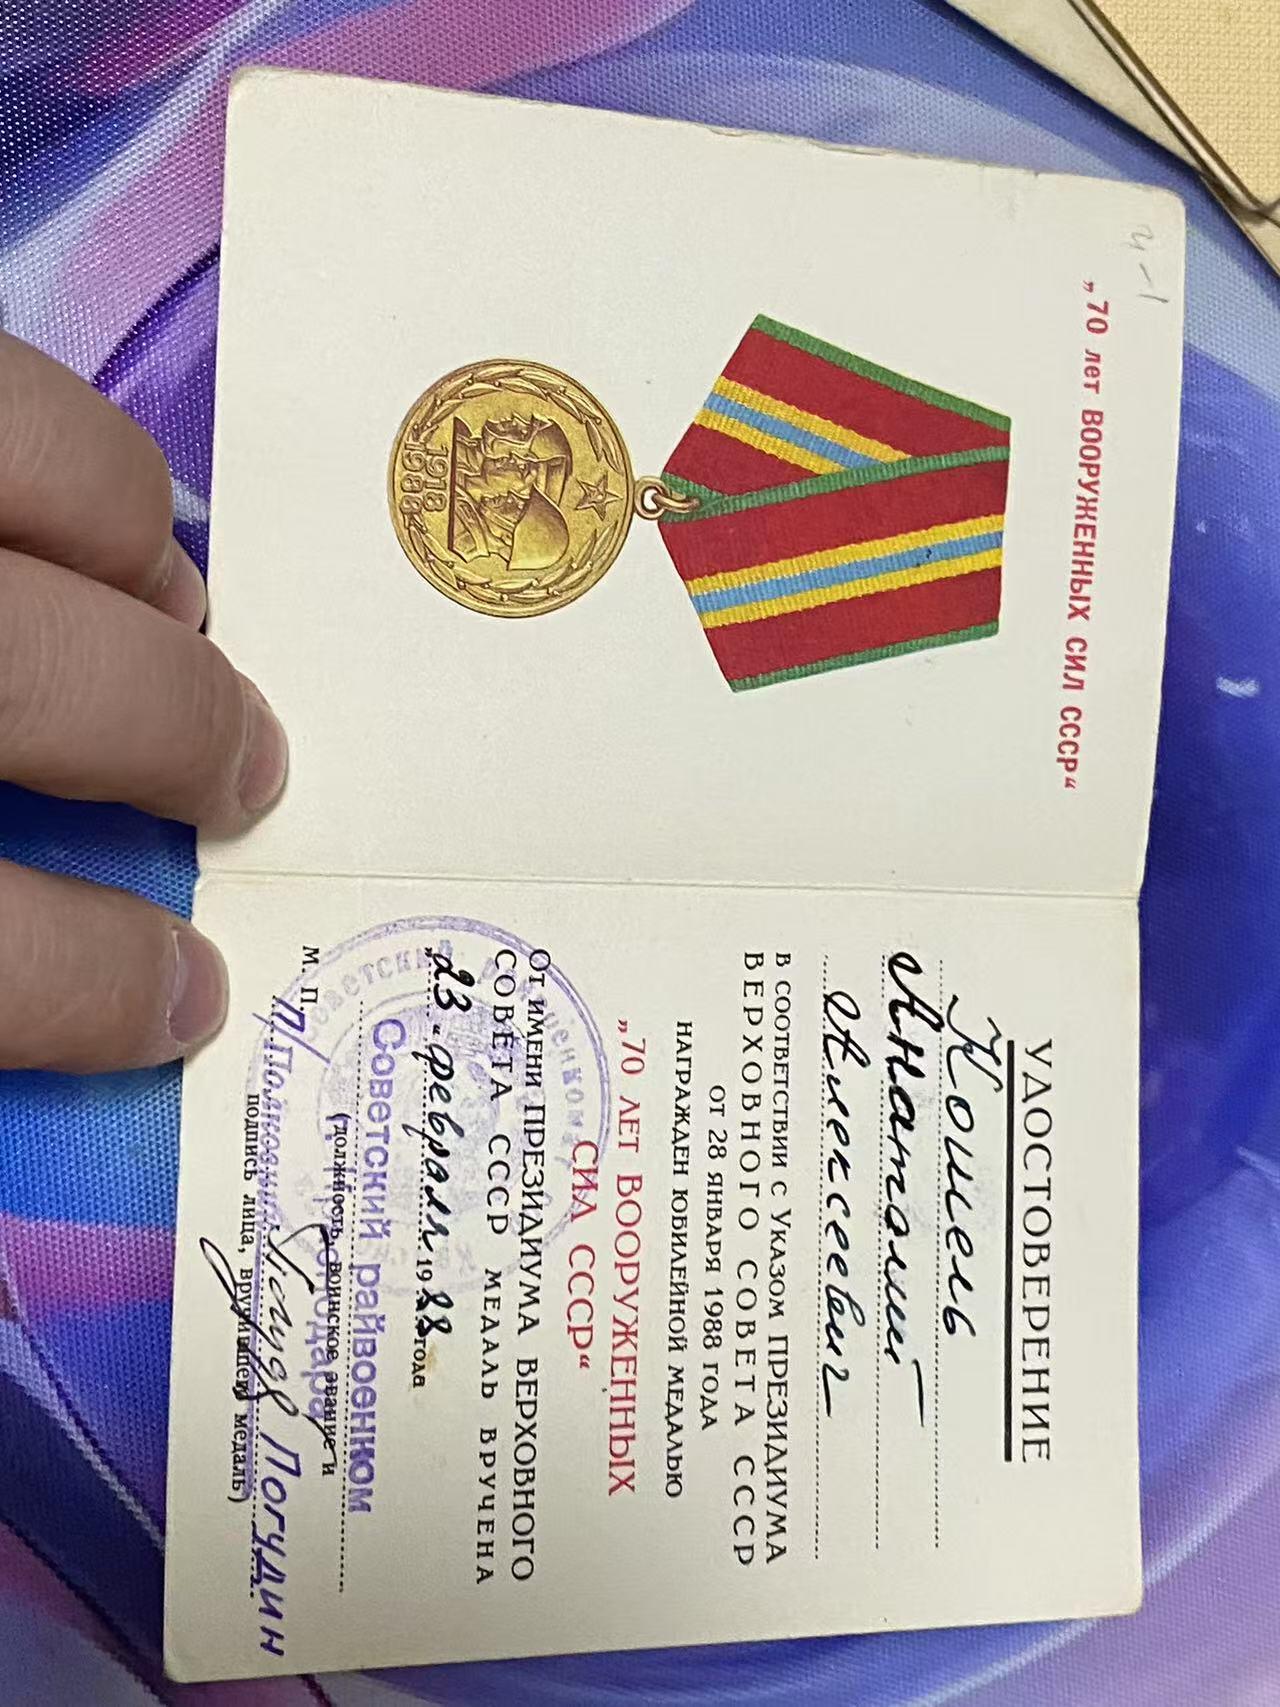 и-1
„70 лет ВООРУЖЕННЫХ СИЛ СССР“
1918
1988
УДОСТОВЕРЕНИЕ
Кошель
Анатолий
Алексеевич
В СООТВЕТСТВИИ С УКАЗОМ ПРЕЗИДИУМА
ВЕРХОВНОГО СОВЕТА СССР
ОТ 28 ЯНВАРЯ 1988 ГОДА
НАГРАЖДЕН ЮБИЛЕЙНОЙ МЕДАЛЬЮ
„70 ЛЕТ ВООРУЖЕННЫХ
СИЛ СССР“
ОТ ИМЕНИ ПРЕЗИДИУМА ВЕРХОВНОГО
СОВЕТА СССР МЕДАЛЬ ВРУЧЕНА
„23“ февраля 1988 года
Советский райвоенком
(должность, воинское звание и
М. П.
П/Полковник Погудин
подпись лица, вручившего медаль)